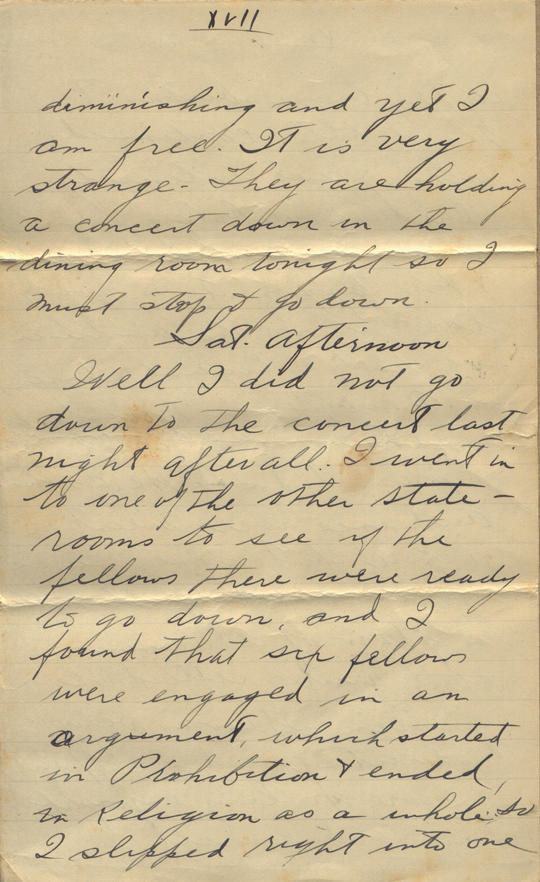 XVII
diminishing and yet I
am free. It is very
strange - They are holding
a concert down in the
dining room tonight so I
must stop & go down.
Sat. Afternoon
Well I did not go
down to the concert last
night after all. I went in
to one of the other state -
rooms to see if the
fellows there were ready
to go down, and I
found that six fellows
were engaged in an
argument, which started
in Prohibition & ended,
in Religion as a whole. So
I slipped right into one